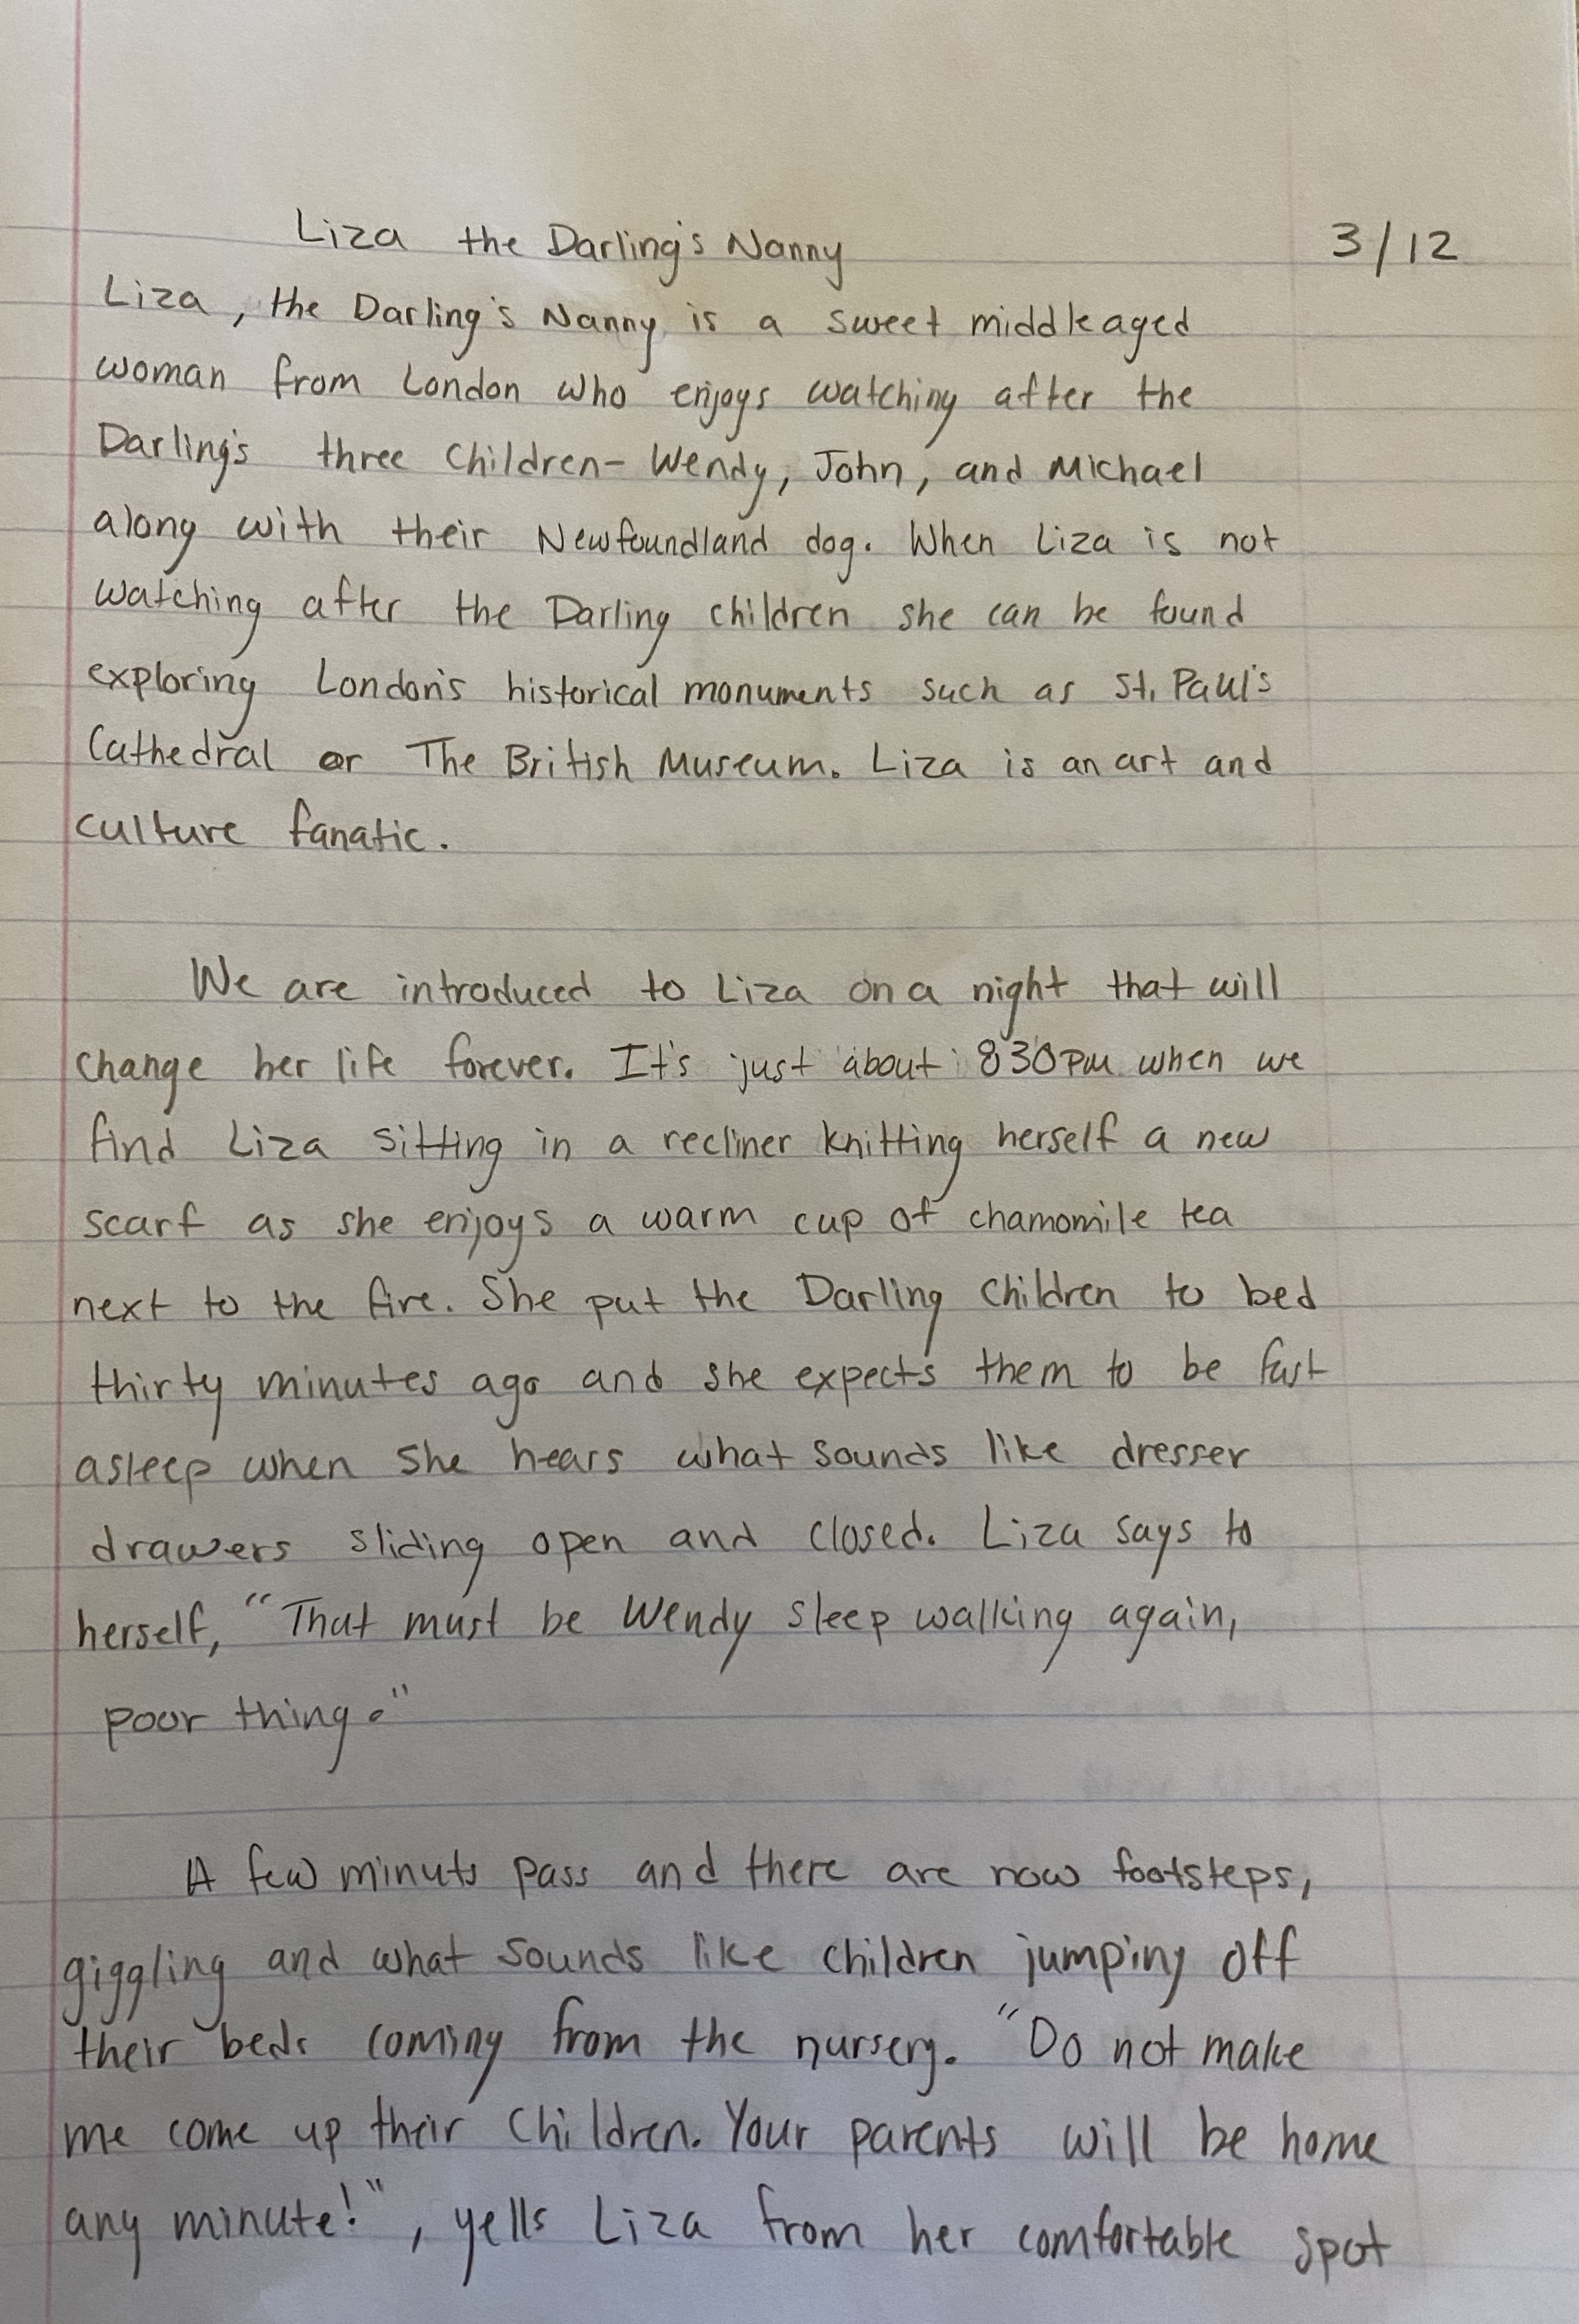 Liza the Darling's Nanny 3/12
Liza, the Darling's Nanny is a sweet middleaged
woman from London who enjoys watching after the
Darling's three children- Wendy, John, and Michael
along with their Newfoundland dog. When Liza is not
watching after the Darling children she can be found
exploring London's historical monuments such as St. Paul's
Cathedral or The British Museum. Liza is an art and
culture fanatic.
We are introduced to Liza on a night that will
change her life forever. It's just about 830pm when we
find Liza sitting in a recliner knitting herself a new
scarf as she enjoys a warm cup of chamomile tea
next to the fire. She put the Darling children to bed
thirty minutes ago and she expects them to be fast
asleep when she hears what sounds like dresser
drawers sliding open and closed. Liza says to
herself, "That must be Wendy sleep walking again,
poor thing."
A few minuts pass and there are now footsteps,
giggling and what sounds like children jumping off
their beds coming from the nursery. "Do not make
me come up their children. Your parents will be home
any minute!", yells Liza from her comfortable spot